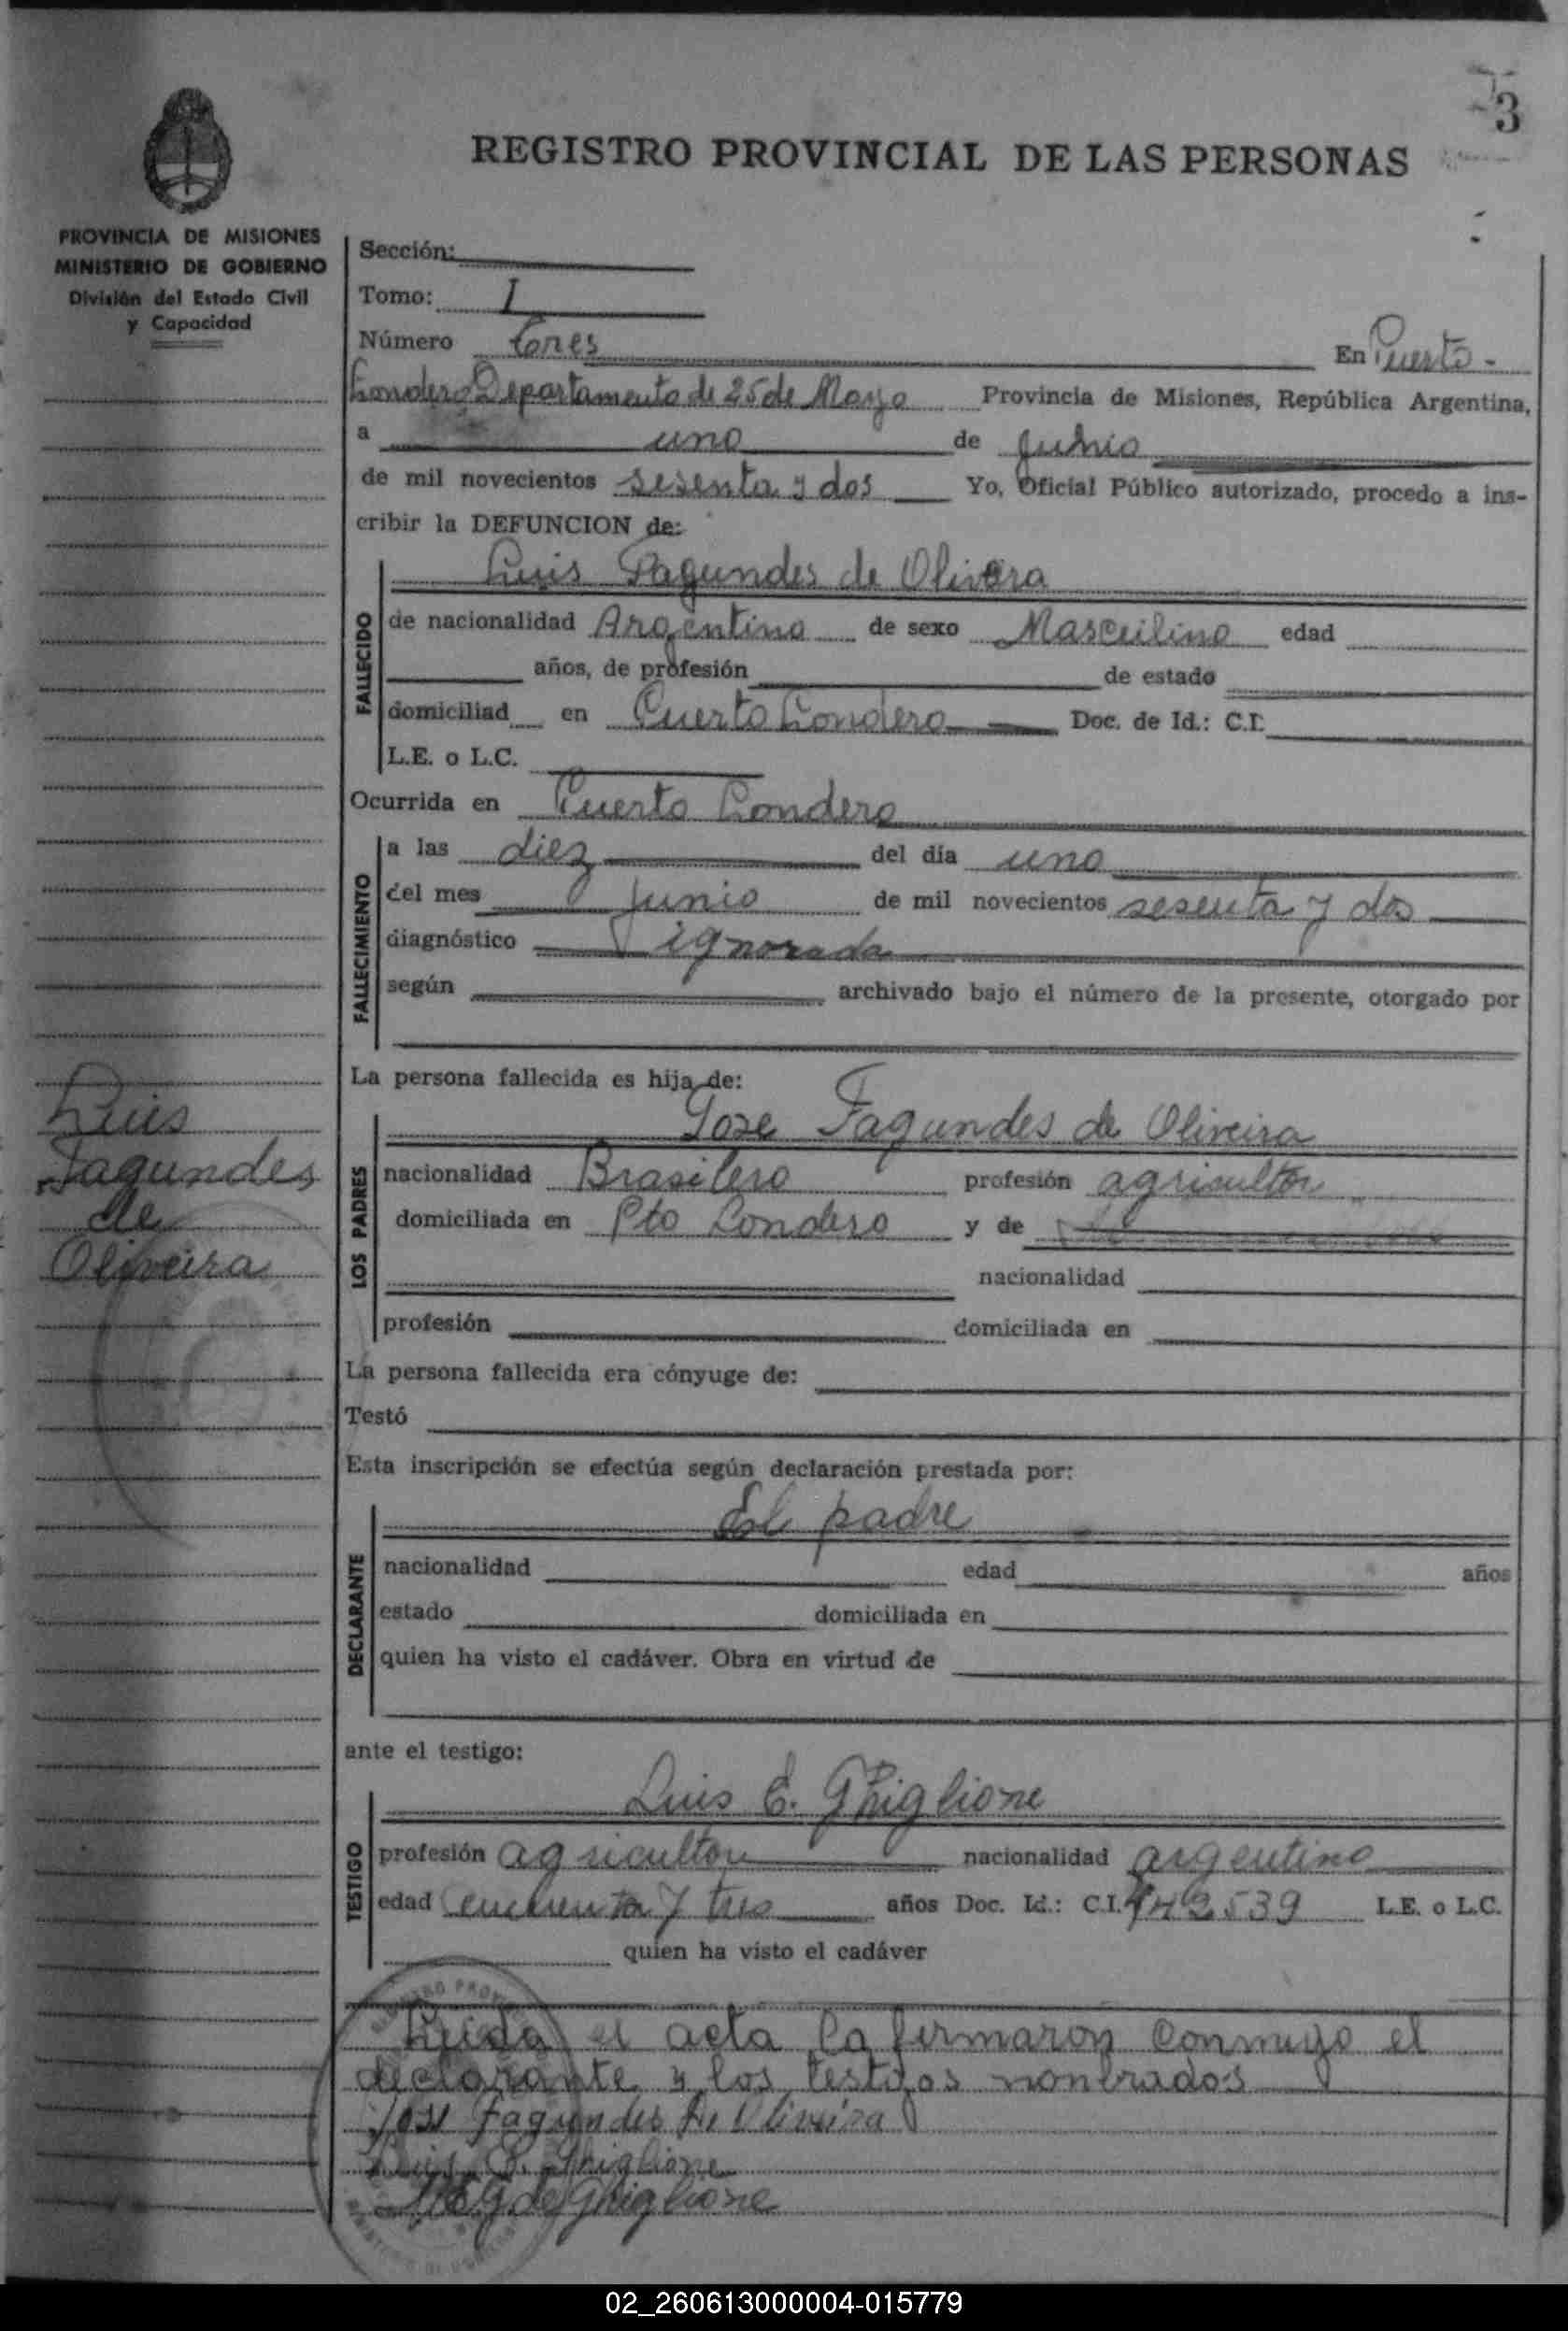 3
REGISTRO PROVINCIAL DE LAS PERSONAS
PROVINCIA DE MISIONES
MINISTERIO DE GOBIERNO
División del Estado Civil
y Capacidad
Sección:
Tomo: I
Número tres En Puerto -
Londero Departamento de 25 de Mayo Provincia de Misiones, República Argentina,
a uno de Junio
de mil novecientos sesenta y dos Yo, Oficial Público autorizado, procedo a ins-
cribir la DEFUNCION de:
Luis Fagundes de Olivera
FALLECIDO
de nacionalidad Argentino de sexo Masculino edad
años, de profesión de estado
domiciliad en Puerto Londero Doc. de Id.: C.I.
L.E. o L.C.
Ocurrida en Puerto Londero
FALLECIMIENTO
a las diez del día uno
del mes Junio de mil novecientos sesenta y dos
diagnóstico ignorada
según archivado bajo el número de la presente, otorgado por
La persona fallecida es hija de:
Jose Fagundes de Oliveira
LOS PADRES
nacionalidad Brasilero profesión agricultor
domiciliada en Pto Londero y de
nacionalidad
profesión domiciliada en
Luis
Fagundes
de
Oliveira
La persona fallecida era cónyuge de:
Testó
Esta inscripción se efectúa según declaración prestada por:
El padre
DECLARANTE
nacionalidad edad años
estado domiciliada en
quien ha visto el cadáver. Obra en virtud de
ante el testigo:
Luis E. Ghiglione
TESTIGO
profesión agricultor nacionalidad argentino
edad cincuenta y tres años Doc. Id.: C.I. 142539 L.E. o L.C.
quien ha visto el cadáver
Leida el acta la firmaron conmigo el
declarante y los testigos nonbrados
Jose Fagundes De Oliveira
Luis E. Ghiglione
de Ghiglione
02_260613000004-015779